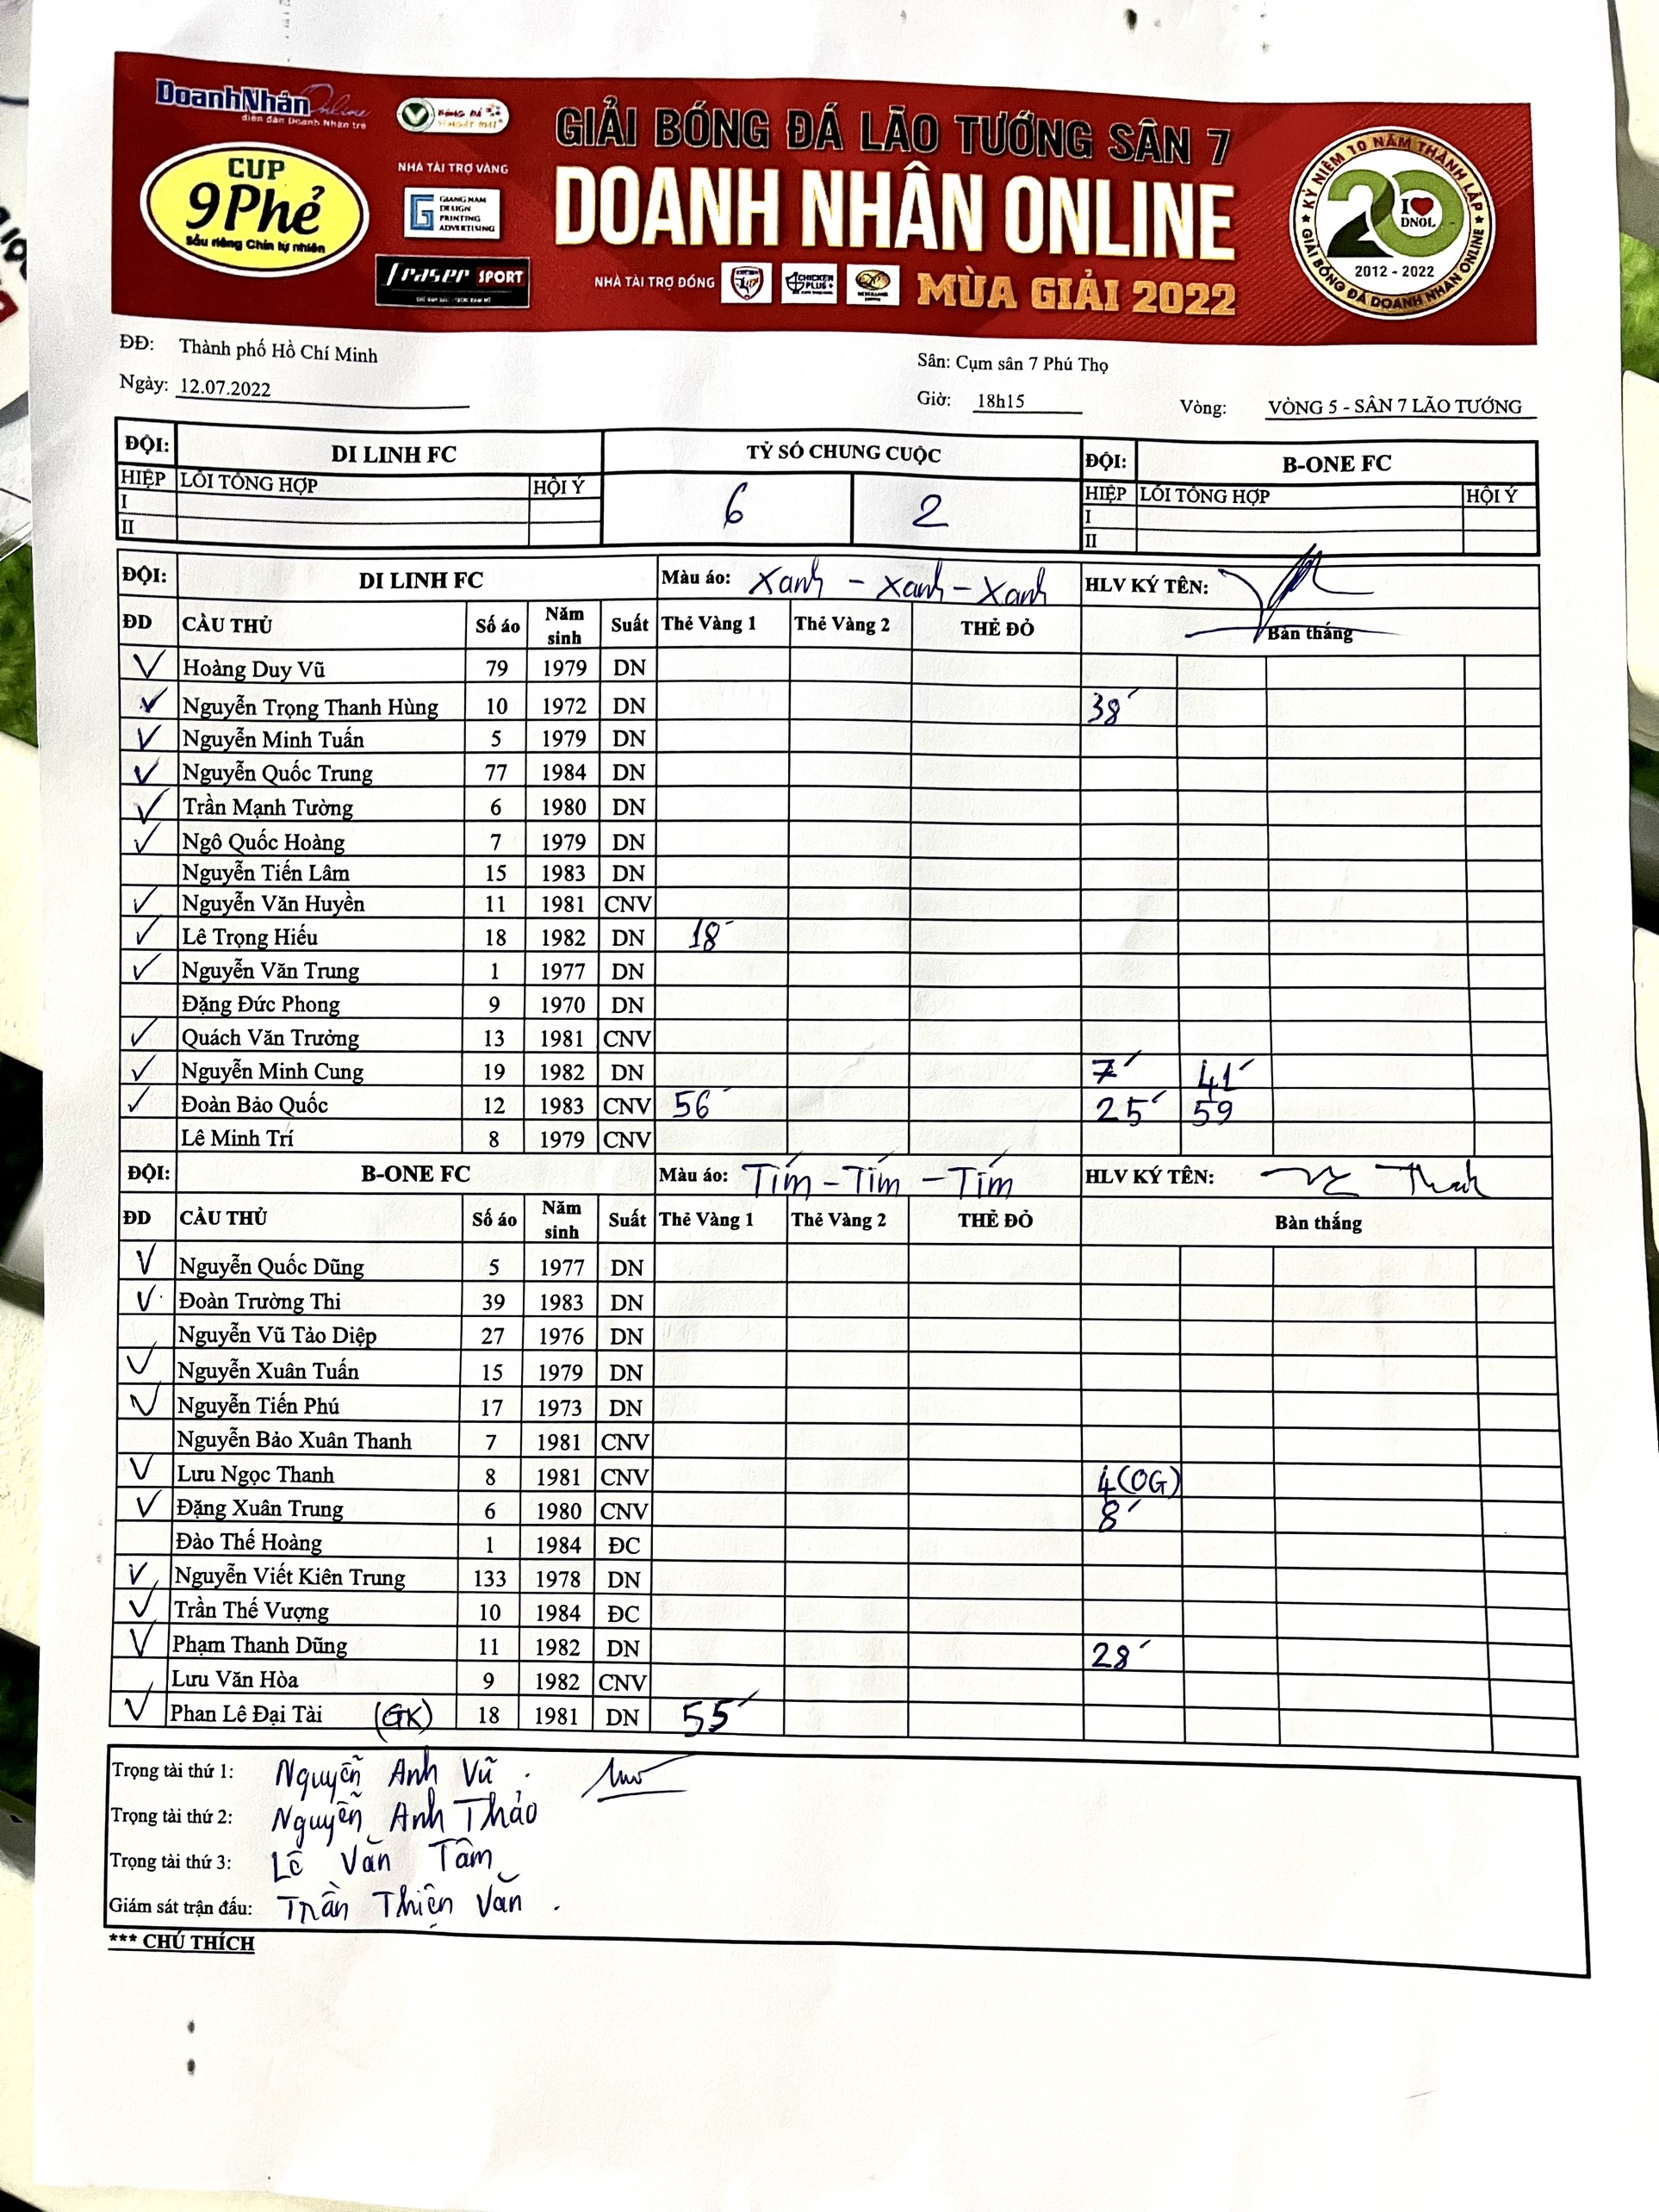 DoanhNhân Online
diễn đàn Doanh Nhân trẻ
CUP
9 Phẻ
Sầu riêng Chín tự nhiên
NHÀ TÀI TRỢ VÀNG
GIANG NAM
DESIGN
PRINTING
ADVERTISING
fraser SPORT
GIẢI BÓNG ĐÁ LÃO TƯỚNG SÂN 7
DOANH NHÂN ONLINE
NHÀ TÀI TRỢ ĐỒNG
CHICKEN
PLUS+
MÙA GIẢI 2022
KỶ NIỆM 10 NĂM THÀNH LẬP
20
I ❤ DNOL
2012 - 2022
GIẢI BÓNG ĐÁ DOANH NHÂN ONLINE
ĐĐ: Thành phố Hồ Chí Minh Sân: Cụm sân 7 Phú Thọ
Ngày: 12.07.2022 Giờ: 18h15 Vòng: VÒNG 5 - SÂN 7 LÃO TƯỚNG
ĐỘI: DI LINH FC TỶ SỐ CHUNG CUỘC ĐỘI: B-ONE FC
HIỆP LỖI TỔNG HỢP HỘI Ý 6 2 HIỆP LỖI TỔNG HỢP HỘI Ý
I I
II II
ĐỘI: DI LINH FC Màu áo: Xanh - Xanh - Xanh HLV KÝ TÊN:
ĐD CẦU THỦ Số áo Năm sinh Suất Thẻ Vàng 1 Thẻ Vàng 2 THẺ ĐỎ Bàn thắng
✓ Hoàng Duy Vũ 79 1979 DN
✓ Nguyễn Trọng Thanh Hùng 10 1972 DN 38'
✓ Nguyễn Minh Tuấn 5 1979 DN
✓ Nguyễn Quốc Trung 77 1984 DN
✓ Trần Mạnh Tường 6 1980 DN
✓ Ngô Quốc Hoàng 7 1979 DN
Nguyễn Tiến Lâm 15 1983 DN
✓ Nguyễn Văn Huyền 11 1981 CNV
✓ Lê Trọng Hiếu 18 1982 DN 18'
✓ Nguyễn Văn Trung 1 1977 DN
Đặng Đức Phong 9 1970 DN
✓ Quách Văn Trưởng 13 1981 CNV
✓ Nguyễn Minh Cung 19 1982 DN 7' 41'
✓ Đoàn Bảo Quốc 12 1983 CNV 56' 25' 59
Lê Minh Trí 8 1979 CNV
ĐỘI: B-ONE FC Màu áo: Tím - Tím - Tím HLV KÝ TÊN: Thanh
ĐD CẦU THỦ Số áo Năm sinh Suất Thẻ Vàng 1 Thẻ Vàng 2 THẺ ĐỎ Bàn thắng
✓ Nguyễn Quốc Dũng 5 1977 DN
✓ Đoàn Trường Thi 39 1983 DN
Nguyễn Vũ Tảo Diệp 27 1976 DN
✓ Nguyễn Xuân Tuấn 15 1979 DN
✓ Nguyễn Tiến Phú 17 1973 DN
Nguyễn Bảo Xuân Thanh 7 1981 CNV
✓ Lưu Ngọc Thanh 8 1981 CNV 4(OG)
✓ Đặng Xuân Trung 6 1980 CNV 8'
Đào Thế Hoàng 1 1984 ĐC
✓ Nguyễn Viết Kiên Trung 133 1978 DN
✓ Trần Thế Vượng 10 1984 ĐC
✓ Phạm Thanh Dũng 11 1982 DN 28'
Lưu Văn Hòa 9 1982 CNV
✓ Phan Lê Đại Tài (GK) 18 1981 DN 55'
Trọng tài thứ 1: Nguyễn Anh Vũ .
Trọng tài thứ 2: Nguyễn Anh Thảo
Trọng tài thứ 3: Lê Văn Tâm
Giám sát trận đấu: Trần Thiện Văn .
*** CHÚ THÍCH